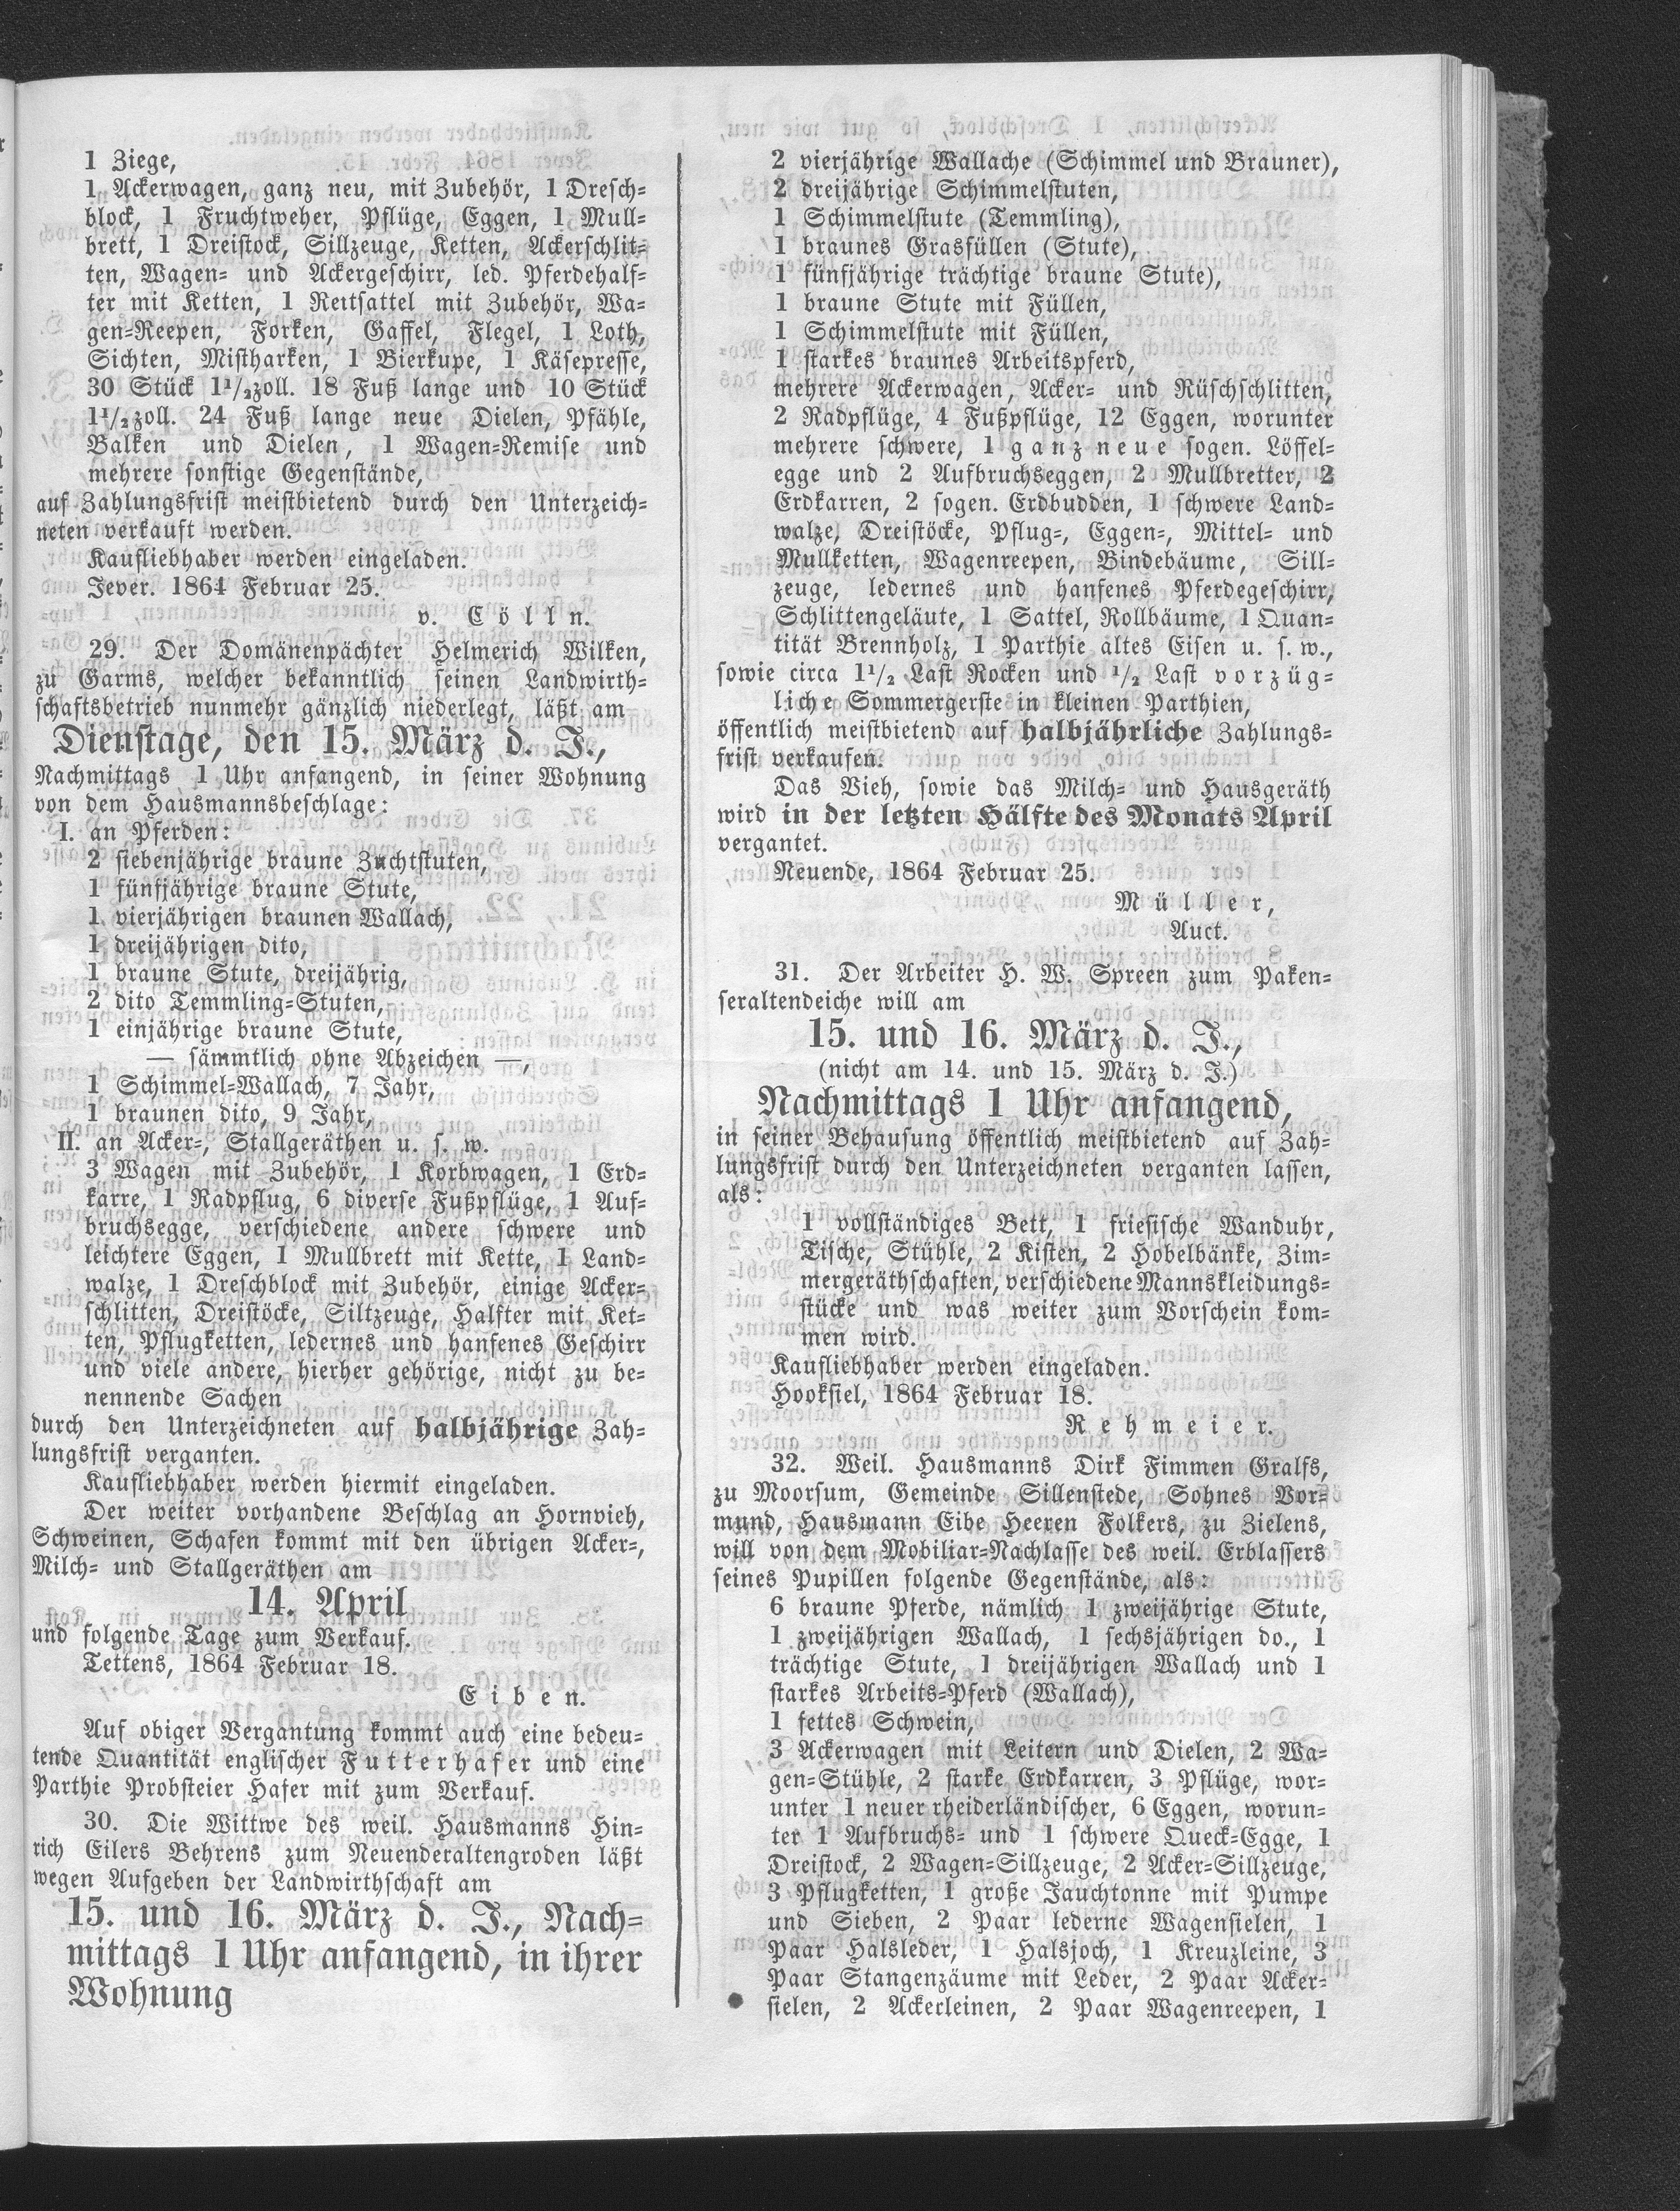 1 Ziege,
1 Ackerwagen, ganz neu, mit Zubehör, 1 Dresch-
block, 1 Fruchtweher, Pflüge, Eggen, 1 Mull-
brett, 1 Dreistock, Sillzeuge, Ketten, Ackerschlit-
ten, Wagen- und Ackergeschirr, led. Pferdehalf-
ter mit Ketten, 1 Reitsattel mit Zubehör, Wa-
gen-Reepen, Forken, Gaffel, Flegel, 1 Loth,
Sichten, Mistharken, 1 Bierkupe, 1 Käsepresse,
30 Stück 1¹/₂zoll. 18 Fuß lange und 10 Stück
1¹/₂zoll. 24 Fuß lange neue Dielen, Pfähle,
Balken und Dielen, 1 Wagen-Remise und
mehrere sonstige Gegenstände,
auf Zahlungsfrist meistbietend durch den Unterzeich-
neten verkauft werden.
Kaufliebhaber werden eingeladen.
Jever. 1864 Februar 25.
v. Cölln.
29. Der Domänenpächter Helmerich Wilken,
zu Garms, welcher bekanntlich seinen Landwirth-
schaftsbetrieb nunmehr gänzlich niederlegt, läßt am
Dienstage, den 15. März d. J.,
Nachmittags 1 Uhr anfangend, in seiner Wohnung
von dem Hausmannsbeschlage:
I. an Pferden:
2 siebenjährige braune Zuchtstuten,
1 fünfjährige braune Stute,
1 vierjährigen braunen Wallach,
1 dreijährigen dito,
1 braune Stute, dreijährig,
2 dito Temmling-Stuten,
1 einjährige braune Stute,
— sämmtlich ohne Abzeichen —,
1 Schimmel-Wallach, 7 Jahr,
1 braunen dito, 9 Jahr,
II. an Acker-, Stallgeräthen u. s. w.
3 Wagen mit Zubehör, 1 Korbwagen, 1 Erd-
karre, 1 Radpflug, 6 diverse Fußpflüge, 1 Auf-
bruchsegge, verschiedene andere schwere und
leichtere Eggen, 1 Mullbrett mit Kette, 1 Land-
walze, 1 Dreschblock mit Zubehör, einige Acker-
schlitten, Dreistöcke, Siltzeuge, Halfter mit Ket-
ten, Pflugketten, ledernes und hanfenes Geschirr
und viele andere, hierher gehörige, nicht zu be-
nennende Sachen
durch den Unterzeichneten auf halbjährige Zah-
lungsfrist verganten.
Kaufliebhaber werden hiermit eingeladen.
Der weiter vorhandene Beschlag an Hornvieh,
Schweinen, Schafen kommt mit den übrigen Acker-,
Milch- und Stallgeräthen am
14. April
und folgende Tage zum Verkauf.
Tettens, 1864 Februar 18.
Eiben.
Auf obiger Vergantung kommt auch eine bedeu-
tende Quantität englischer Futterhafer und eine
Parthie Probsteier Hafer mit zum Verkauf.
30. Die Wittwe des weil. Hausmanns Hin-
rich Eilers Behrens zum Neuenderaltengroden läßt
wegen Aufgeben der Landwirthschaft am
15. und 16. März d. J., Nach-
mittags 1 Uhr anfangend, in ihrer
Wohnung
2 vierjährige Wallache (Schimmel und Brauner),
2 dreijährige Schimmelstuten,
1 Schimmelstute (Temmling),
1 braunes Grasfüllen (Stute),
1 fünfjährige trächtige braune Stute),
1 braune Stute mit Füllen,
1 Schimmelstute mit Füllen,
1 starkes braunes Arbeitspferd,
mehrere Ackerwagen, Acker- und Rüschschlitten,
2 Radpflüge, 4 Fußpflüge, 12 Eggen, worunter
mehrere schwere, 1 ganz neue sogen. Löffel-
egge und 2 Aufbruchseggen, 2 Mullbretter, 2
Erdkarren, 2 sogen. Erdbudden, 1 schwere Land-
walze, Dreistöcke, Pflug-, Eggen-, Mittel- und
Mullketten, Wagenreepen, Bindebäume, Sill-
zeuge, ledernes und hanfenes Pferdegeschirr,
Schlittengeläute, 1 Sattel, Rollbäume, 1 Quan-
tität Brennholz, 1 Parthie altes Eisen u. s. w.,
sowie circa 1¹/₂ Last Rocken und ¹/₂ Last vorzüg-
liche Sommergerste in kleinen Parthien,
öffentlich meistbietend auf halbjährliche Zahlungs-
frist verkaufen.
Das Vieh, sowie das Milch- und Hausgeräth
wird in der letzten Hälfte des Monats April
vergantet.
Neuende, 1864 Februar 25.
Müller,
Auct.
31. Der Arbeiter H. W. Spreen zum Paken-
seraltendeiche will am
15. und 16. März d. J.,
(nicht am 14. und 15. März d. J.)
Nachmittags 1 Uhr anfangend,
in seiner Behausung öffentlich meistbietend auf Zah-
lungsfrist durch den Unterzeichneten verganten lassen,
als:
1 vollständiges Bett, 1 friesische Wanduhr,
Tische, Stühle, 2 Kisten, 2 Hobelbänke, Zim-
mergeräthschaften, verschiedene Mannskleidungs-
stücke und was weiter zum Vorschein kom-
men wird.
Kaufliebhaber werden eingeladen.
Hooksiel, 1864 Februar 18.
Rehmeier.
32. Weil. Hausmanns Dirk Fimmen Gralfs,
zu Moorsum, Gemeinde Sillenstede, Sohnes Vor-
mund, Hausmann Eibe Heeren Folkers, zu Zielens,
will von dem Mobiliar-Nachlasse des weil. Erblassers
seines Pupillen folgende Gegenstände, als:
6 braune Pferde, nämlich 1 zweijährige Stute,
1 zweijährigen Wallach, 1 sechsjährigen do., 1
trächtige Stute, 1 dreijährigen Wallach und 1
starkes Arbeits-Pferd (Wallach),
1 fettes Schwein,
3 Ackerwagen mit Leitern und Dielen, 2 Wa-
gen-Stühle, 2 starke Erdkarren, 3 Pflüge, wor-
unter 1 neuer rheiderländischer, 6 Eggen, worun-
ter 1 Aufbruchs- und 1 schwere Queck-Egge, 1
Dreistock, 2 Wagen-Sillzeuge, 2 Acker-Sillzeuge,
3 Pflugketten, 1 große Jauchtonne mit Pumpe
und Sieben, 2 Paar lederne Wagensielen, 1
Paar Halsleder, 1 Halsjoch, 1 Kreuzleine, 3
Paar Stangenzäume mit Leder, 2 Paar Acker-
sielen, 2 Ackerleinen, 2 Paar Wagenreepen, 1